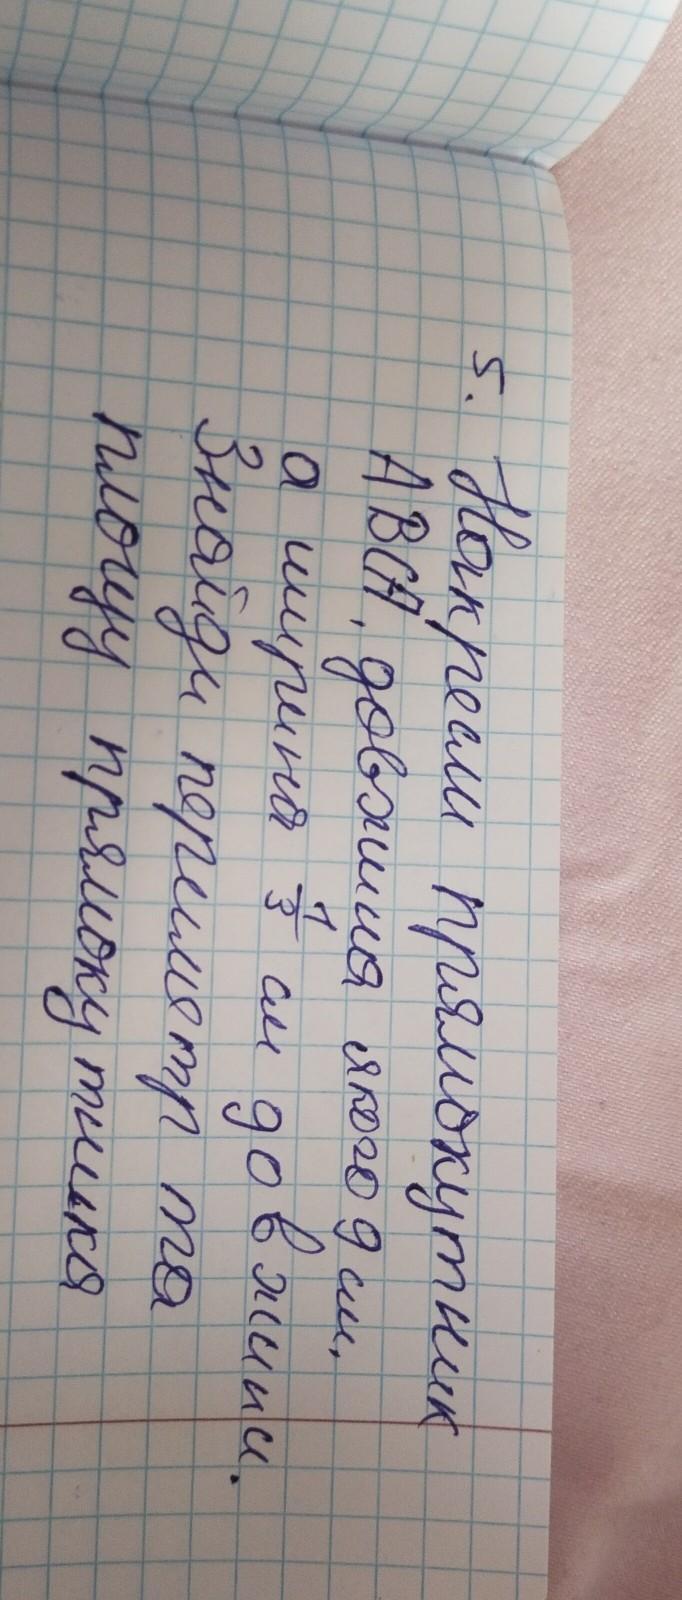 5. Накресли прямокутник
АВСД, довжина якого 9 см,
а ширина 1/3 см довжини.
Знайди периметр та
площу прямокутника